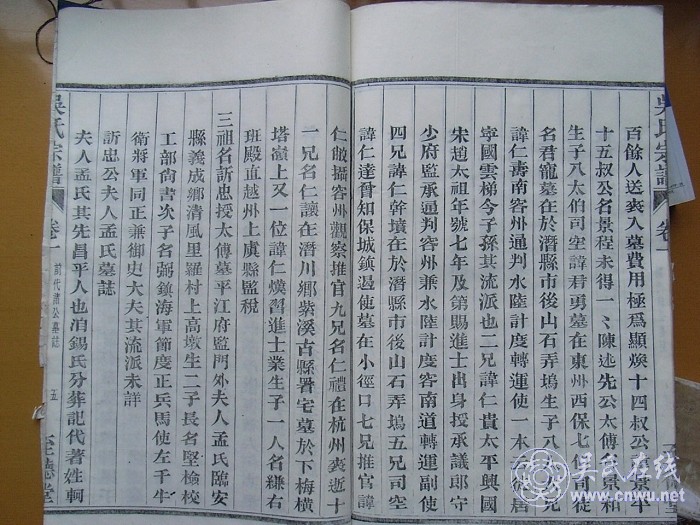 吳氏宗譜
卷一
百餘人送喪入墓費用極爲顯煥十四叔公名景平
十五叔公名景程未得一〻陳述先公太傅名景和
生子八太伯司空諱君勇墓在東州西保七
名君龍墓在於潛縣市後山石弄塢生子八
諱仁壽南容州通判水陸計度轉運使一本
寧國雲梯令子孫其流派也二兄諱仁貴太平興國
宋趙太祖年號七年及第賜進士出身授承議郎守
少府監承通判容州兼水陸計度容南道轉運副使
四兄諱仁幹墳在於潛縣市後山石弄塢五兄司空
諱仁達曾知保城鎮遏使墓在小徑口七兄推官諱
仁皷攝容州觀察推官九兄名仁禮在杭州喪近十
一兄名仁讓在潛川鄉紫溪古縣署宅墓於下梅橫
塔嶺上又一位諱仁煥習進士業生子一人名縑右
班殿直越州上虞縣監稅
三祖名訢忠授太傅墓平江府監門外夫人孟氏臨安
縣義成鄉清風里羅村上高墩生二子長名堅檢校
工部尙書次子名弼鎮海軍節度正兵馬使左千牛
衛將軍同正兼御史大夫其流派未詳
訢忠公夫人孟氏墓誌
夫人孟氏其先昌平人也洎錫氏分葬記代著姓軻
吳氏宗譜
卷一
前代諸公墓誌
五
至德堂
吳氏网
www.cnwu.net